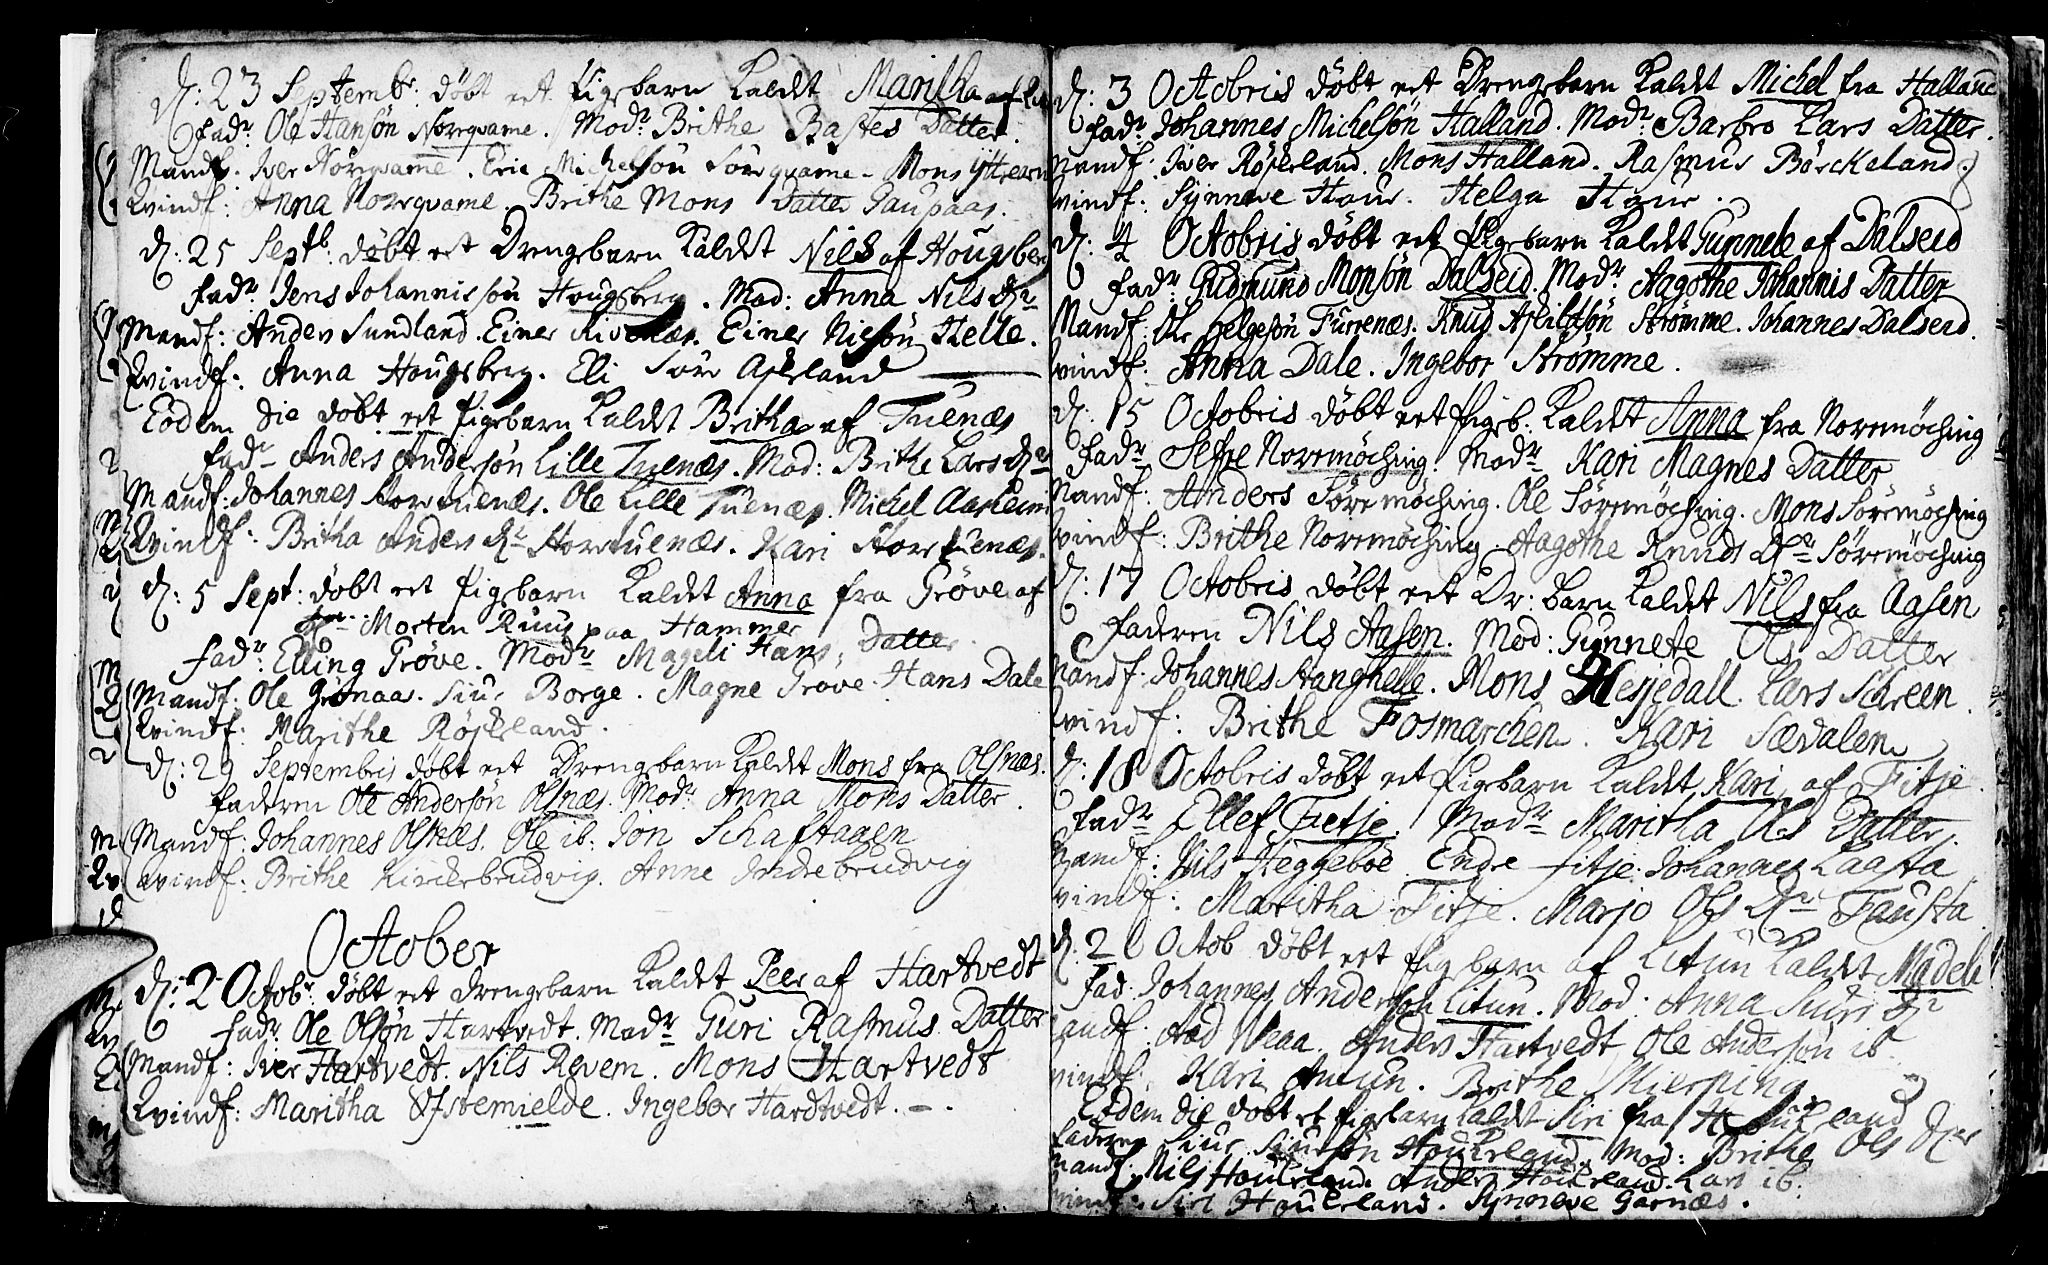 d: 23 Septemb: döbt eet Pigebarn kaldt Maritha af
Fadr: Ole Hansön Norrqvame. Modr Brithe Bastes Datter
Mandf: Iver Norrqvame. Eric Michelsön Sörqvame. Mons
Qvindf: Anna Norrqvame. Brithe Mons Datter Gaupaas.
d: 25 Septb: döbt eet Drengebarn kaldet Nils af Hougsberg
Fadr Jens Johannissön Hougsberg. Mod: Anna Nils Dr
Mandf: Anders Sundland. Einer Rivenæs. Einer Nilsön Helle.
Qvindf: Anna Hougsberg. Eli Söre Askeland
Eodem die döbt eet Pigebarn kaldet Britha af Tuenæs
Fadr Anders Andersön Lille Tuenæs. Mod: Brithe Lars Dr
Mandf: Johannes Stor tuenæs. Ole Lille Tuenæs. Michel Aasheim
Qvindf: Britha Anders Dr Stor tuenæs. Kari Stor tuenæs.
d: 5 Sept: döbt eet Pigebarn kaldet Anna fra Gröve af
Morten Ruus paa Hammer
Fadr: Elling Gröve. Modr Mageli Hans Datter
Mandf: Ole Grönaas. Siur Borge. Magne Gröve. Hans Dale
Qvindf: Marithe Röskeland.
d: 29 Septembris döbt eet Drengebarn kaldet Mons fra Olsnæs.
Faderen Ole Andersön Olsnæs. Modr Anna Mons Datter.
Mandf: Johannes Olsnæs. Ole ib: Jon Schaftaaen
Qvindf: Brithe Kirckebrudvig. Anne Indrebrudvig
October
d: 2 Octobr: döbt eet drengebarn kaldet Peer af Hartvedt
Fadr Ole Olsön Hartvedt. Modr Guri Rasmus Datter
Mandf: Iver Hartvedt. Nils Revem. Mons Hartvedt
Qvindf: Maritha Ofstemielde. Ingebor Hardtvedt.
d: 3 Octobris döbt eet Drengebarn kaldet Michel fra Halland
Fadr Johannes Michelsön Halland. Modr Barbro Lars Datter.
Mandf: Iver Röskeland. Mons Halland. Rasmus Börckeland.
Qvindf: Synneve Houe. Helga Houe.
d: 4 Octobris döbt eet Pigebarn kaldet Gunnele af Dalseid
Fadr: Gudmund Monsön Dalseid. Modr Aagothe Johannis Datter
Mandf: Ole Helgesön Furrenæs. Knud Askildsön Strømme. Johannes Dalseid.
Qvindf: Anna Dale. Ingebor Strømme.
d: 15 Octobris döbt eet Pigeb. kaldet Anna fra Norremöching
Fadr Norremöching. Modr Kari Magnes Datter
Mandf: Anders Söremöching. Ole Söremöching. Mons Söremöching
Qvindf: Brithe Norremöching. Aagothe Knuds Dr Söremöching
d: 17 Octobris döbt eet Dr: barn kaldet Nils fra Aasen
Faderen Nils Aasen. Mod: Gunnele Ols Datter
Mandf: Johannes Stanghelle. Mons Hesjedall. Lars Schreen.
Qvindf: Brithe Fosmarchen. Kari Sædalen
d: 18 Octobris döbt eet Pigebarn kaldet Kari af Fitje.
Fadr Ellef Fietje. Modr Maritha Ols Datter.
Mandf: Nils Heggeboe. Endre Fitje. Johannes
Qvindf: Maritha Fitje. Marjo Ols Dr Fausta
d. 21 Octob döbt eet Pigbarn af Litun kaldet Madele
Fad: Johannes Andersön Litun. Mod: Anna Siurs Dr
Mandf: Aad Weaa. Anders Hartvedt, Ole Andersön ib
Qvindf: Kari Brithe Skierping
Eodem die döbt et Pigebarn kaldet Siri fra Houkeland
Faderen Siur Siursön Houkeland. Mod: Brithe Ols Dr
Mandf: Nils Houkeland. Anders Houkeland. Lars ib:
Qvindf: Siri Houkeland. Synneve Garnæs.